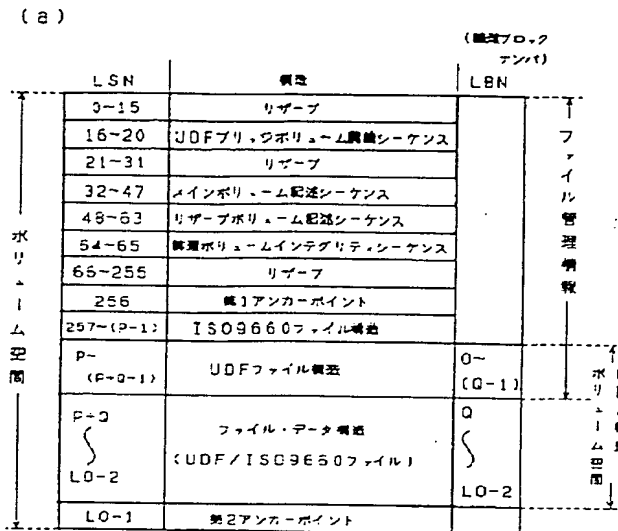 (a)
(論理ブロック
ナンバ)
LSN 構造 LBN
0~15 リザーブ
16~20 UDFブリッジボリューム認識シーケンス
21~31 リザーブ
32~47 メインボリューム記述シーケンス
48~63 リザーブボリューム記述シーケンス
64~65 論理ボリュームインテグリティシーケンス
66~255 リザーブ
256 第1アンカーポイント
257~(P-1) ISO9660ファイル構造
P~
(P+Q-1)
UDFファイル構造
0~
(Q-1)
P+Q
∫
LO-2
ファイル・データ構造
(UDF/ISO9660ファイル)
Q
∫
LO-2
LO-1 第2アンカーポイント
ボリューム空間
ファイル管理情報
ボリューム空間